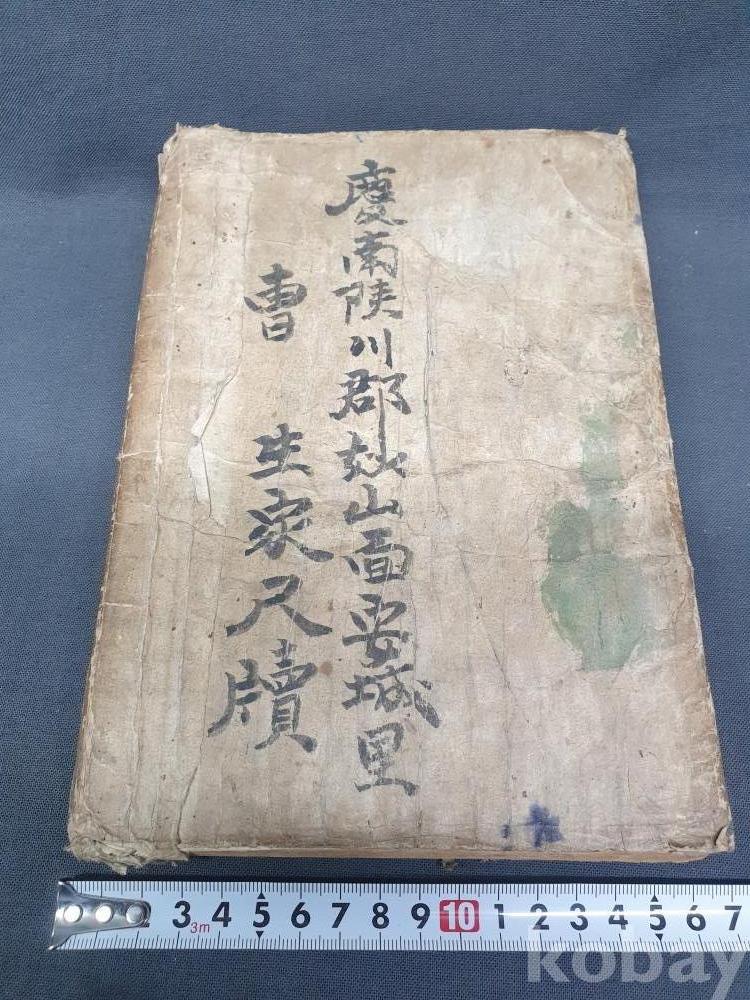 慶南陜川郡妙山面安城里
曺 生家尺牘
3 4 5 6 7 8 9 10 1 2 3 4 5 6 7
3m
kobay